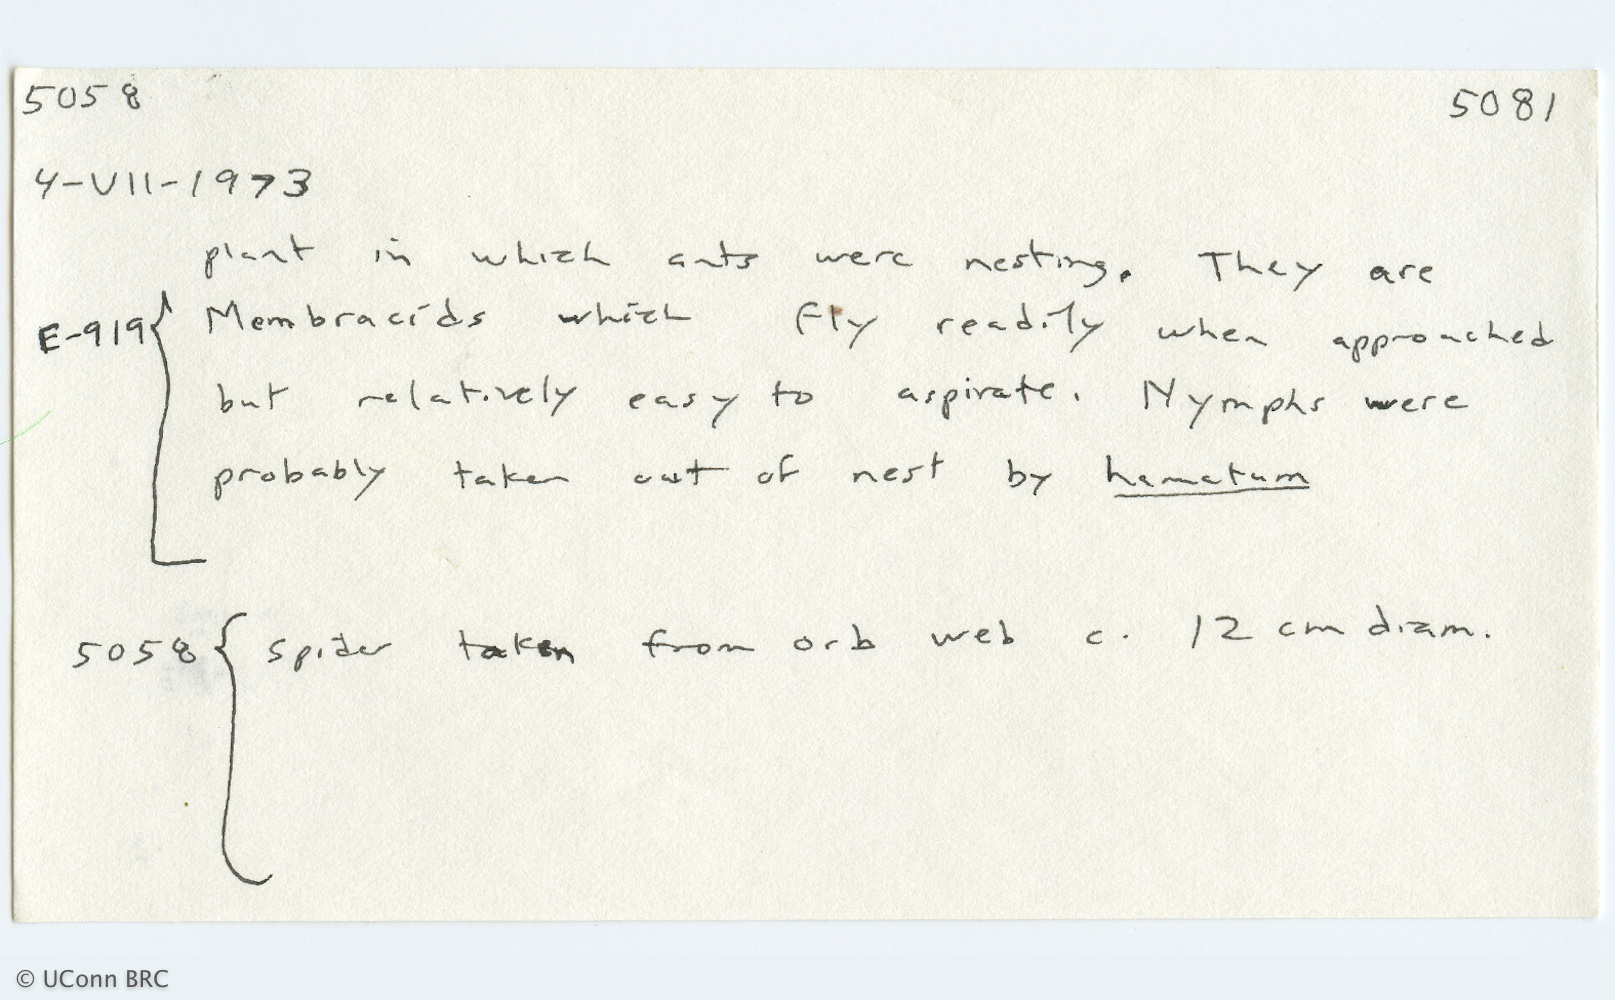 5058 5081
4-VII-1973
plant in which ants were nesting. They are
E-919 { Membracids which fly readily when approached
but relatively easy to aspirate. Nymphs were
probably taken out of nest by hamatum
5058 { spider taken from orb web c. 12 cm diam.
© UConn BRC